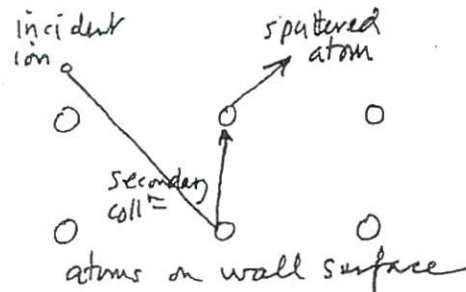 incident
ion
sputtered
atom
secondary
coll⁼
atoms on wall surface